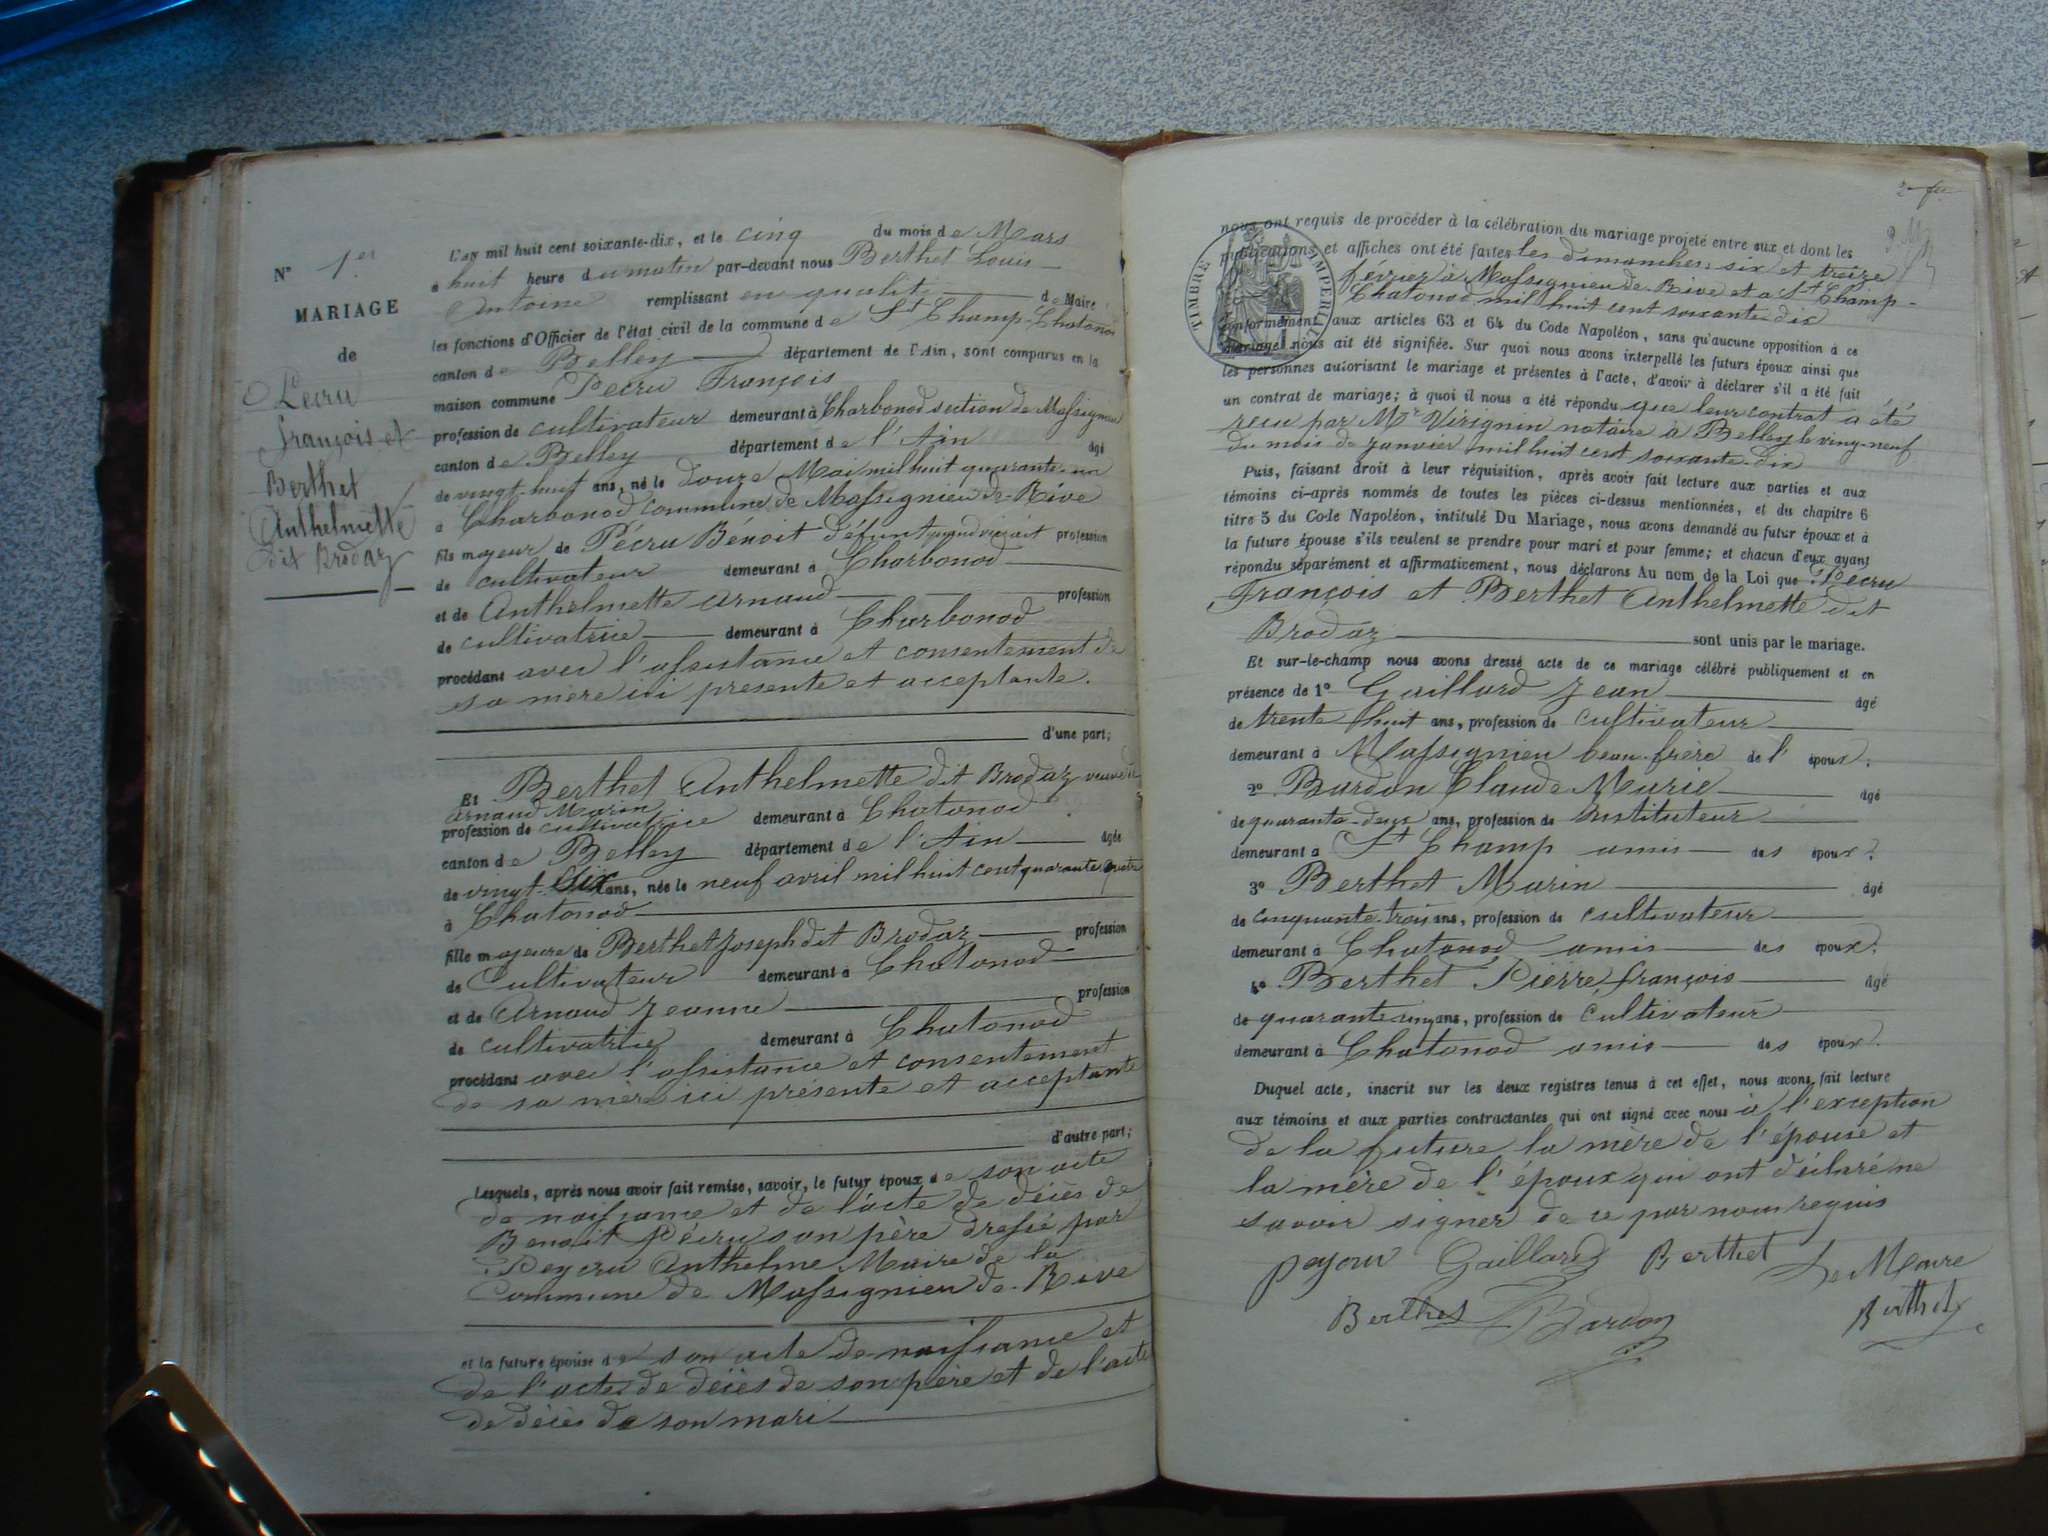 N° 1.er
MARIAGE
de
Pecru
François et
Berthet
Anthelmette
dit Brodaz
L'an mil huit cent soixante-dix, et le cinq du mois de Mars
à huit heure du matin par-devant nous Berthet Louis
Antoine remplissant en qualité de Maire
les fonctions d'Officier de l'état civil de la commune de St Champ-Chatonod
canton de Belley département de l'Ain, sont comparus en la
maison commune Pecru François
profession de cultivateur demeurant à Charbonod section de Massignieu
canton de Belley département de l'Ain âgé
de vingt-huit ans, né le douze Mai mil huit quarante-un
à Charbonod commune de Massignieu de Rive
fils majeur de Pécru Bénoit défunt quand vivait profession
de cultivateur demeurant à Charbonod
et de Anthelmette Arnaud profession
de cultivatrice demeurant à Charbonod
procédant avec l'assistance et consentement de
sa mère ici présente et acceptante.
d'une part;
Et Berthet Anthelmette dit Brodaz veuve de
Arnaud Marin
profession de cultivatrice demeurant à Chatonod
canton de Belley département de l'Ain âgée
de vingt-six ans, née le neuf avril mil huit cent quarante quatre
à Chatonod
fille majeure de Berthet Joseph dit Brodaz profession
de Cultivateur demeurant à Chatonod
et de Arnaud Jeanne profession
de cultivatrice demeurant à Chatonod
procédant avec l'assistance et consentement
de sa mère ici présente et acceptante
d'autre part;
Lesquels, après nous avoir fait remise, savoir, le futur époux de son acte
de naissance et de l'acte de décès de
Benoit Pécru son père dressé par
Peycru Anthelme Maire de la
Commune de Massignieu de Rive
et la future épouse de son acte de naissance et
de l'acte de décès de son père et de l'acte
de décès de son mari
2e fe
nous ont requis de procéder à la célébration du mariage projeté entre eux et dont les
publications et affiches ont été faites les dimanches, six et treize
février à Massignieu de Rive et a St Champ-
Chatonod mil huit cent soixante dix
TIMBRE IMPÉRIAL
conformément aux articles 63 et 64 du Code Napoléon, sans qu'aucune opposition à ce
mariage nous ait été signifiée. Sur quoi nous avons interpellé les futurs époux ainsi que
les personnes autorisant le mariage et présentes à l'acte, d'avoir à déclarer s'il a été fait
un contrat de mariage; à quoi il nous a été répondu que leur contrat a été
recu par Mr Virignin notaire à Belley le ving-neuf
du mois de janvier mil huit cent soixante-dix
Puis, faisant droit à leur réquisition, après avoir fait lecture aux parties et aux
témoins ci-après nommés de toutes les pièces ci-dessus mentionnées, et du chapitre 6
titre 5 du Code Napoléon, intitulé Du Mariage, nous avons demandé au futur époux et à
la future épouse s'ils veulent se prendre pour mari et pour femme; et chacun d'eux ayant
répondu séparément et affirmativement, nous déclarons Au nom de la Loi que Pecru
François et Berthet Anthelmette dit
Brodaz sont unis par le mariage.
Et sur-le-champ nous avons dressé acte de ce mariage célébré publiquement et en
présence de 1° Gaillard Jean âgé
de trente huit ans, profession de cultivateur
demeurant à Massignieu beau-frère de l' époux;
2° Bardon Claude Marie âgé
de quarante-deux ans, profession de Instituteur
demeurant a St Champ amis des époux;
3° Berthet Marin âgé
de cinquante-trois ans, profession de cultivateur
demeurant à Chatonod amis des époux;
4° Berthet Pierre françois âgé
de quarante cinq ans, profession de Cultivateur
demeurant à Chatonod amis des époux.
Duquel acte, inscrit sur les deux registres tenus à cet effet, nous avons fait lecture
aux témoins et aux parties contractantes qui ont signé avec nous à l'exception
de la future la mère de l'épouse et
la mère de l'époux qui ont déclaré ne
savoir signer de ce par nous requis
Gaillard Berthet Le Maire
Berthet Bardon Berthet